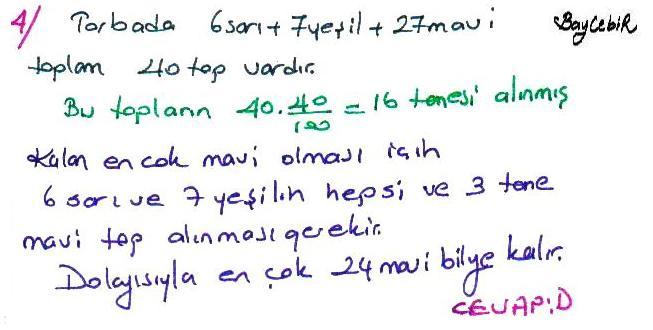 4/ Torbada 6 sarı + 7 yeşil + 27 mavi BAYCEBİR
toplam 40 top vardır.
Bu topların 40 . 40/100 = 16 tanesi alınmış
Kalan en çok mavi olması için
6 sarı ve 7 yeşilin hepsi ve 3 tane
mavi top alınması gerekir.
Dolayısıyla en çok 24 mavi bilye kalır.
CEVAP: D